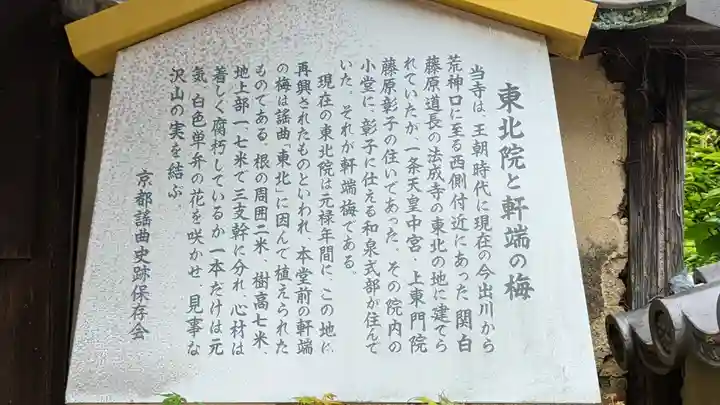 東北院と軒端の梅
当寺は、王朝時代に現在の今出川から
荒神口に至る西側付近にあった関白
藤原道長の法成寺の東北の地に建てら
れていたが、一条天皇中宮、上東門院
藤原彰子の住いであった。その院内の
小堂に、彰子に仕える和泉式部が住んで
いた。それが軒端梅である。
現在の東北院は元禄年間に、この地に
再興されたものといわれ、本堂前の軒端
の梅は謡曲「東北」に因んて植えられた
ものである。根の周囲二米、樹高七米、
地上部一、七米で三支幹に分れ、心材は
着しく腐朽しているか一本だけは元
気、白色単弁の花を咲かせ、見事な
沢山の実を結ぶ
京都謡曲史跡保存会